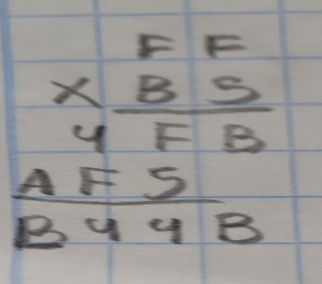 F F
X B S
4 F B
A F S
B 4 4 B